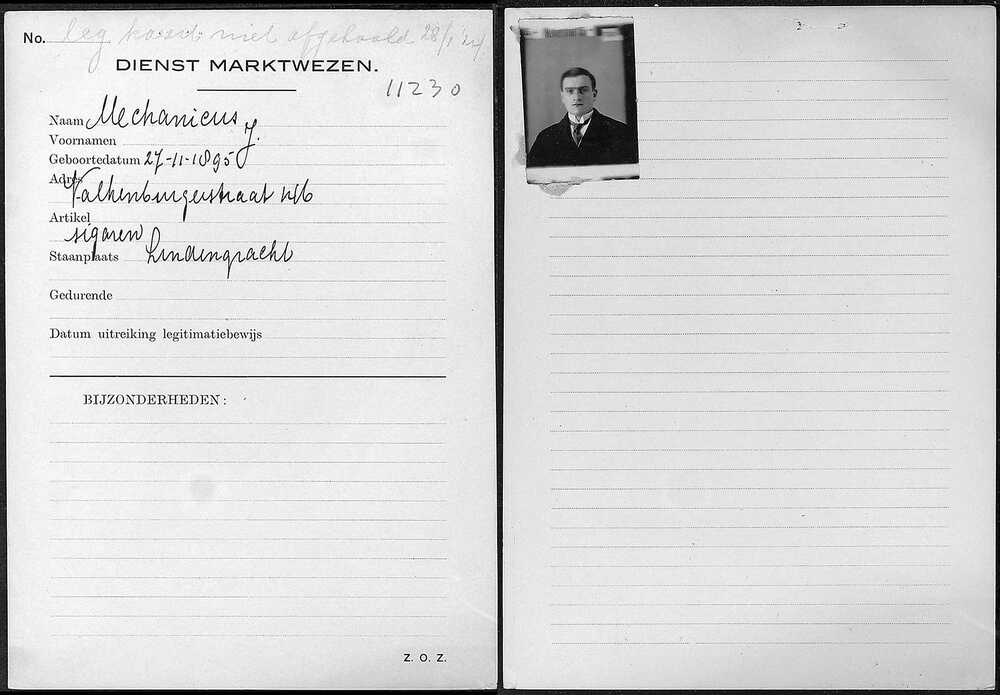 No. leg kaart niet afgehaald 28/1 '24
DIENST MARKTWEZEN.
11230
Naam Mechanicus
Voornamen J.
Geboortedatum 27-11-1895
Adres
Valkenburgerstraat 146
Artikel
sigaren
Staanplaats Lindengracht
Gedurende
Datum uitreiking legitimatiebewijs
BIJZONDERHEDEN:
Z. O. Z.